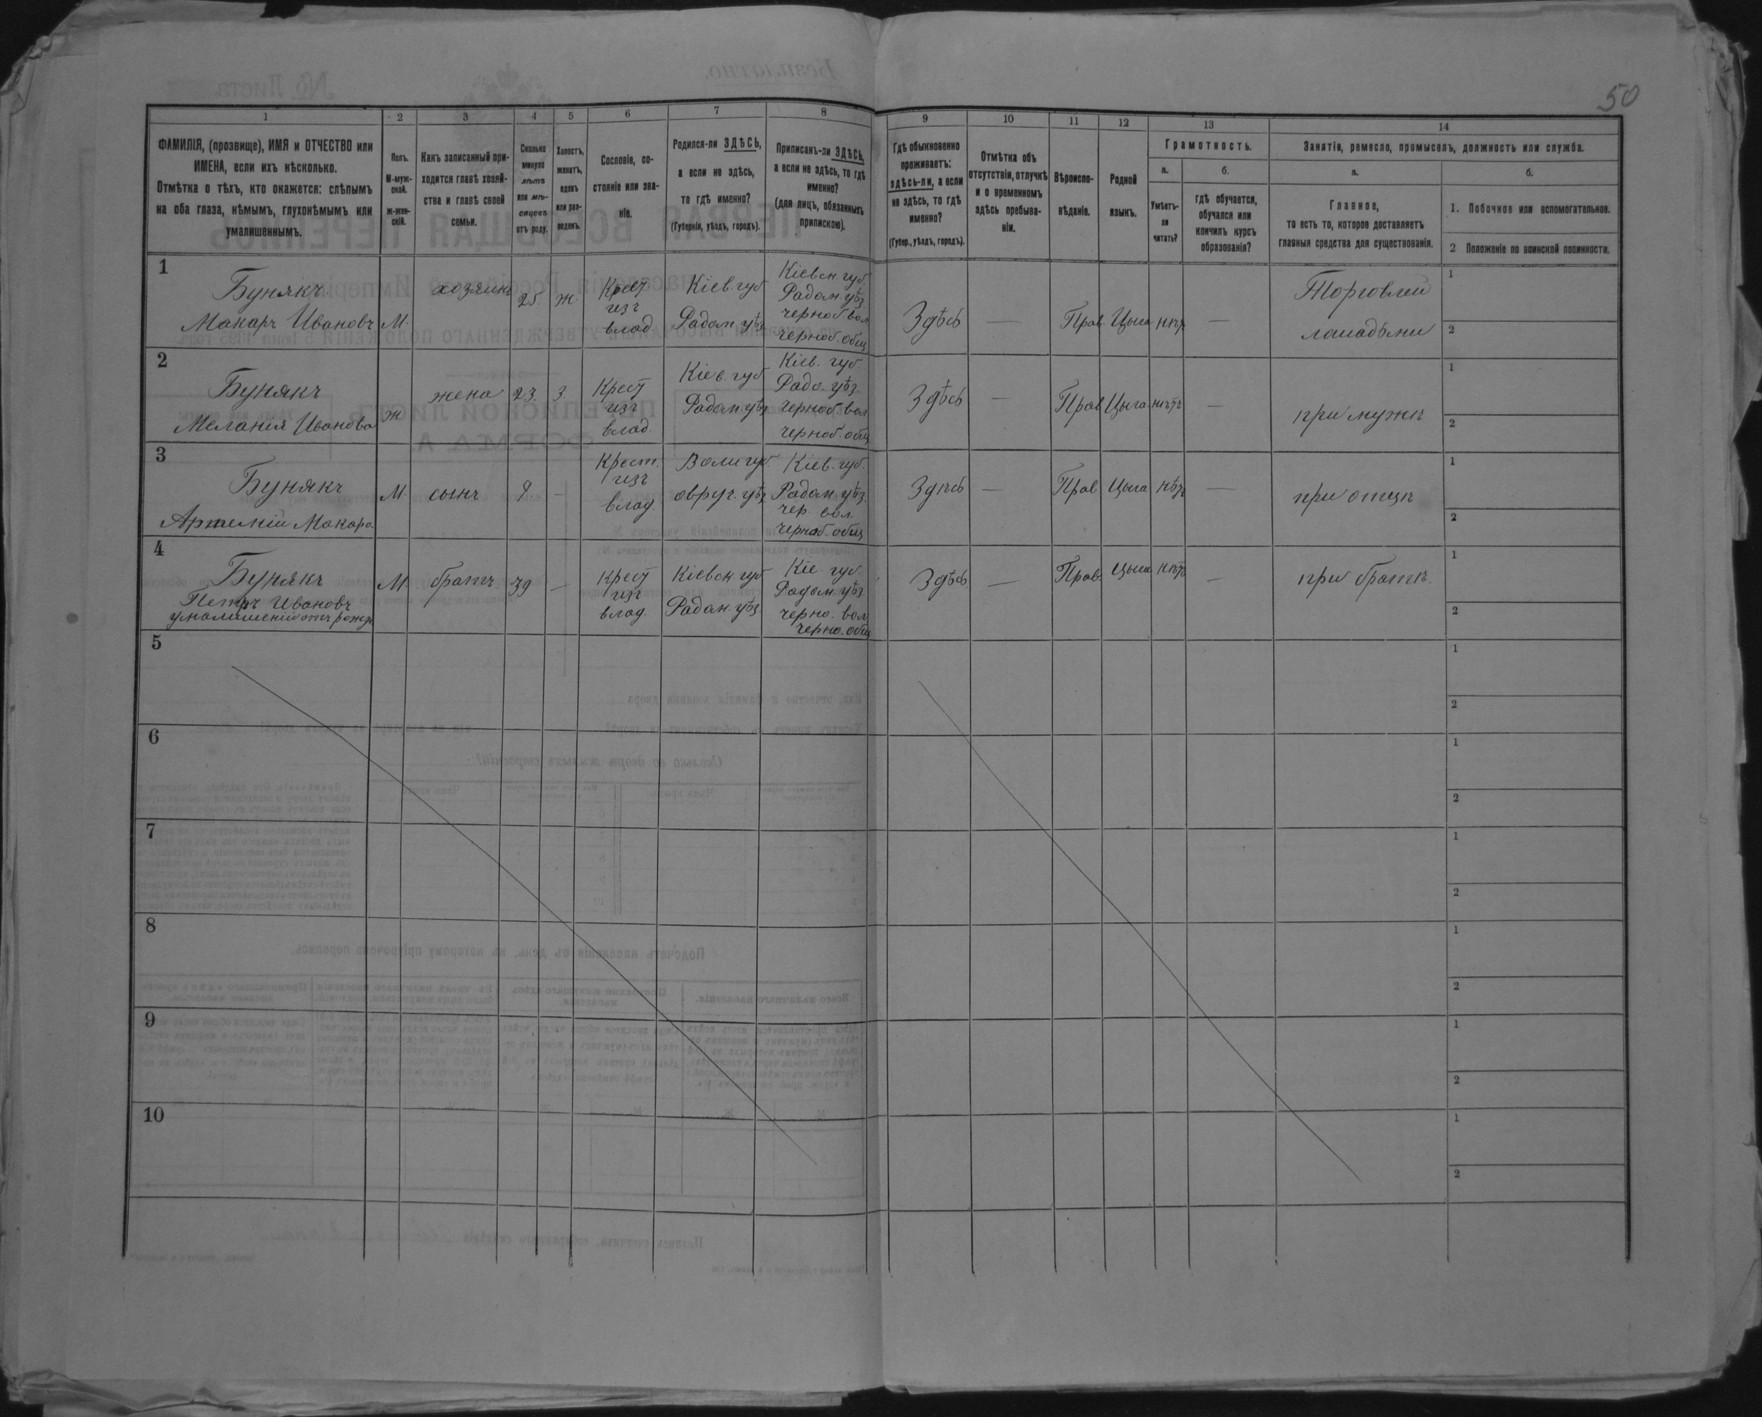 50
1 2 3 4 5 6 7 8 9 10 11 12 13 14
ФАМИЛІЯ, (прозвище), ИМЯ и ОТЧЕСТВО или
ИМЕНА, если ихъ нѣсколько.
Отмѣтка о тѣхъ, кто окажется: слѣпымъ
на оба глаза, нѣмымъ, глухонѣмымъ или
умалишеннымъ.
Полъ.
М-муж-
ской.
Ж-жен-
скій.
Какъ записанный при-
ходится главѣ хозяй-
ства и главѣ своей
семьи.
Сколько
минуло
лѣтъ
или мѣ-
сяцевъ
отъ роду.
Холостъ,
женатъ,
вдовъ
или раз-
веденъ.
Сословіе, со-
стояніе или зва-
ніе.
Родился-ли ЗДѢСЬ,
а если не здѣсь,
то гдѣ именно?
(Губернія, уѣздъ, городъ).
Приписанъ-ли ЗДѢСЬ,
а если не здѣсь, то гдѣ
именно?
(для лицъ, обязанныхъ
припискою).
Гдѣ обыкновенно
проживаетъ:
здѣсь-ли, а если
не здѣсь, то гдѣ
именно?
(Губер., уѣздъ, городъ).
Отмѣтка объ
отсутствіи, отлучкѣ
и о временномъ
здѣсь пребыва-
ніи.
Вѣроиспо-
вѣданіе.
Родной
языкъ.
Грамотность.
а.
Умѣетъ-
ли
читать?
б.
гдѣ обучается,
обучался или
кончилъ курсъ
образованія?
Занятія, ремесло, промыселъ, должность или служба.
а.
Главное,
то есть то, которое доставляетъ
главныя средства для существованія.
б.
1. Побочное или вспомогательное.
2 Положеніе по воинской повинности.
1
Бунякъ
Макаръ Ивановъ
М.
хозяинъ
25
ж.
Крест
изъ
влад
Кіев. губ
Радом. уѣз
Кіевск. губ
Радом. уѣз.
черноб. вол
черноб. общ
Здѣсь
—
Прав
Цыга
нѣтъ
—
Торговля
лошадьми
1
2
2
Бунякъ
Меланія Иванова
ж
жена
23.
з.
Крест
изъ
влад.
Кіев. губ
Радом. уѣз
Кіев. губ
Радо. уѣз
черноб. вол
черноб. общ
Здѣсь
—
Прав
Цыга
нѣтъ
—
при мужѣ
1
2
3
Бунякъ
Артемій Макаро
М
сынъ
—
Крест.
изъ
влад.
Волы губ.
овруч. уѣз
Кіев. губ.
Радом. уѣз.
чер. вол.
черноб. общ
Здѣсь
—
Прав
Цыга
нѣтъ
—
при отцѣ
1
2
4
Бунякъ
Петръ Ивановъ
умалишений отъ рожд
М
братъ
39
—
Крест
изъ
влад.
Кіевск. губ
Радом. уѣз
Кіе. губ.
Радом. уѣз
черно. вол
черно. общ
Здѣсь
—
Прав.
Цыга
нѣтъ
—
при братѣ.
1
2
5
1
2
6
1
2
7
1
2
8
1
2
9
1
2
10
1
2